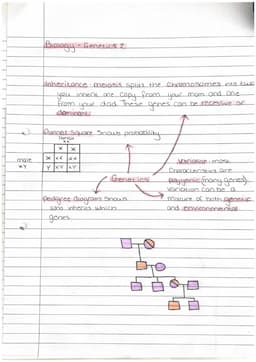 Biology - Genetics 2:
Inheritance: meiosis splits the chromosomes into two
you inherit one copy from your mom and one
from your dad. These genes can be recessive or
dominant
Punnet Square shows probability
female
xx
X X
male
XY
X XX XX
Y XY XY
Genetics
Variation - most
characteristics are
polygenic (many genes).
Variation can be a
mixture of both genetic
and environmental
Pedigree diagram shows
who inherits which
genes.